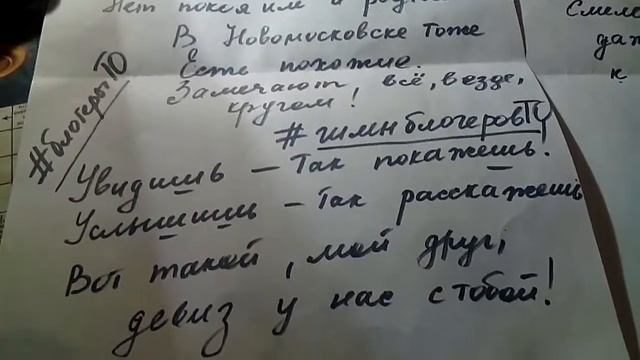 Нет покоя им и
В Новомосковске тоже
Есть похожие.
Замечают всё, везде,
кругом!
#блогерыТО
#гимнблогеровТО
Увидишь – Так покажешь.
Услышишь – Так расскажешь
Вот такой, мой друг,
девиз у нас с тобой!
Смело
да
к